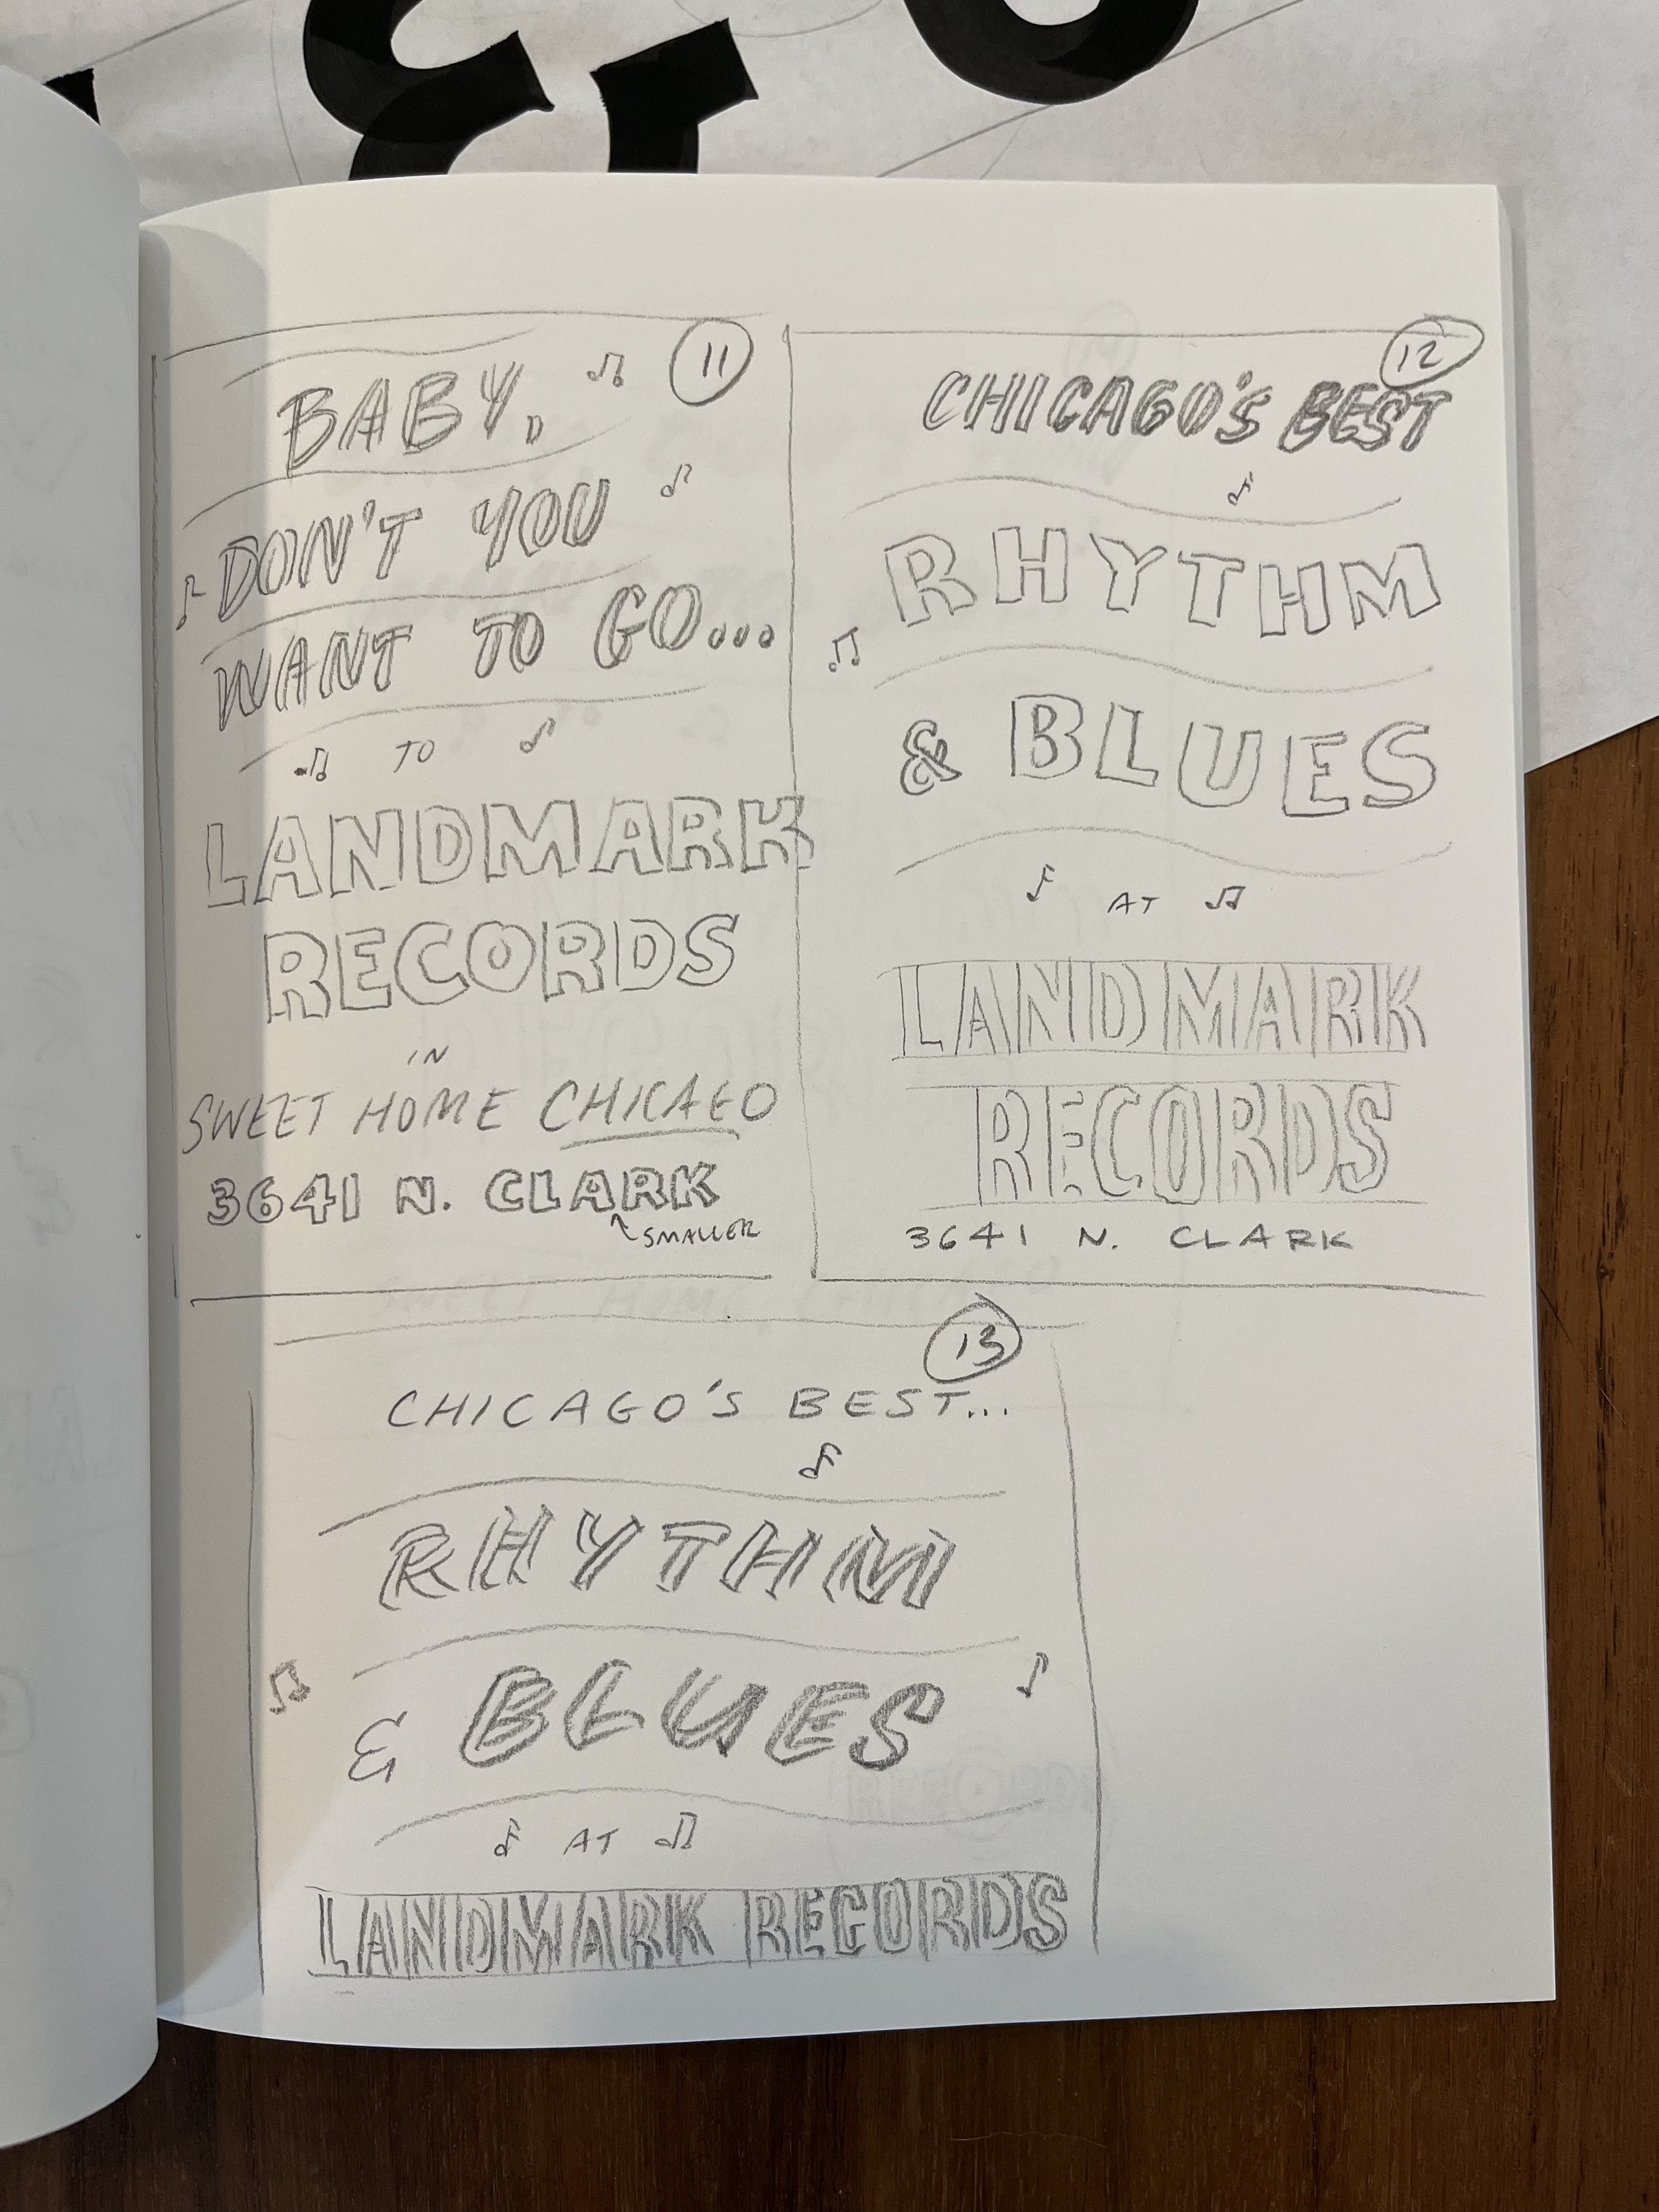 11
BABY,
DON'T YOU
WANT TO GO...
TO
LANDMARK
RECORDS
IN
SWEET HOME CHICAGO
3641 N. CLARK
SMALLER
12
CHICAGO'S BEST
RHYTHM
& BLUES
AT
LANDMARK
RECORDS
3641 N. CLARK
13
CHICAGO'S BEST...
RHYTHM
& BLUES
AT
LANDMARK RECORDS